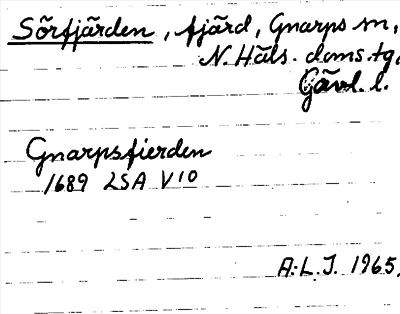 Sörfjärden, fjärd, Gnarps sn,
N. Häls. doms. tg.
Gävl. l.
Gnarpsfierden
1689 LSA V10
A.L.J. 1965.